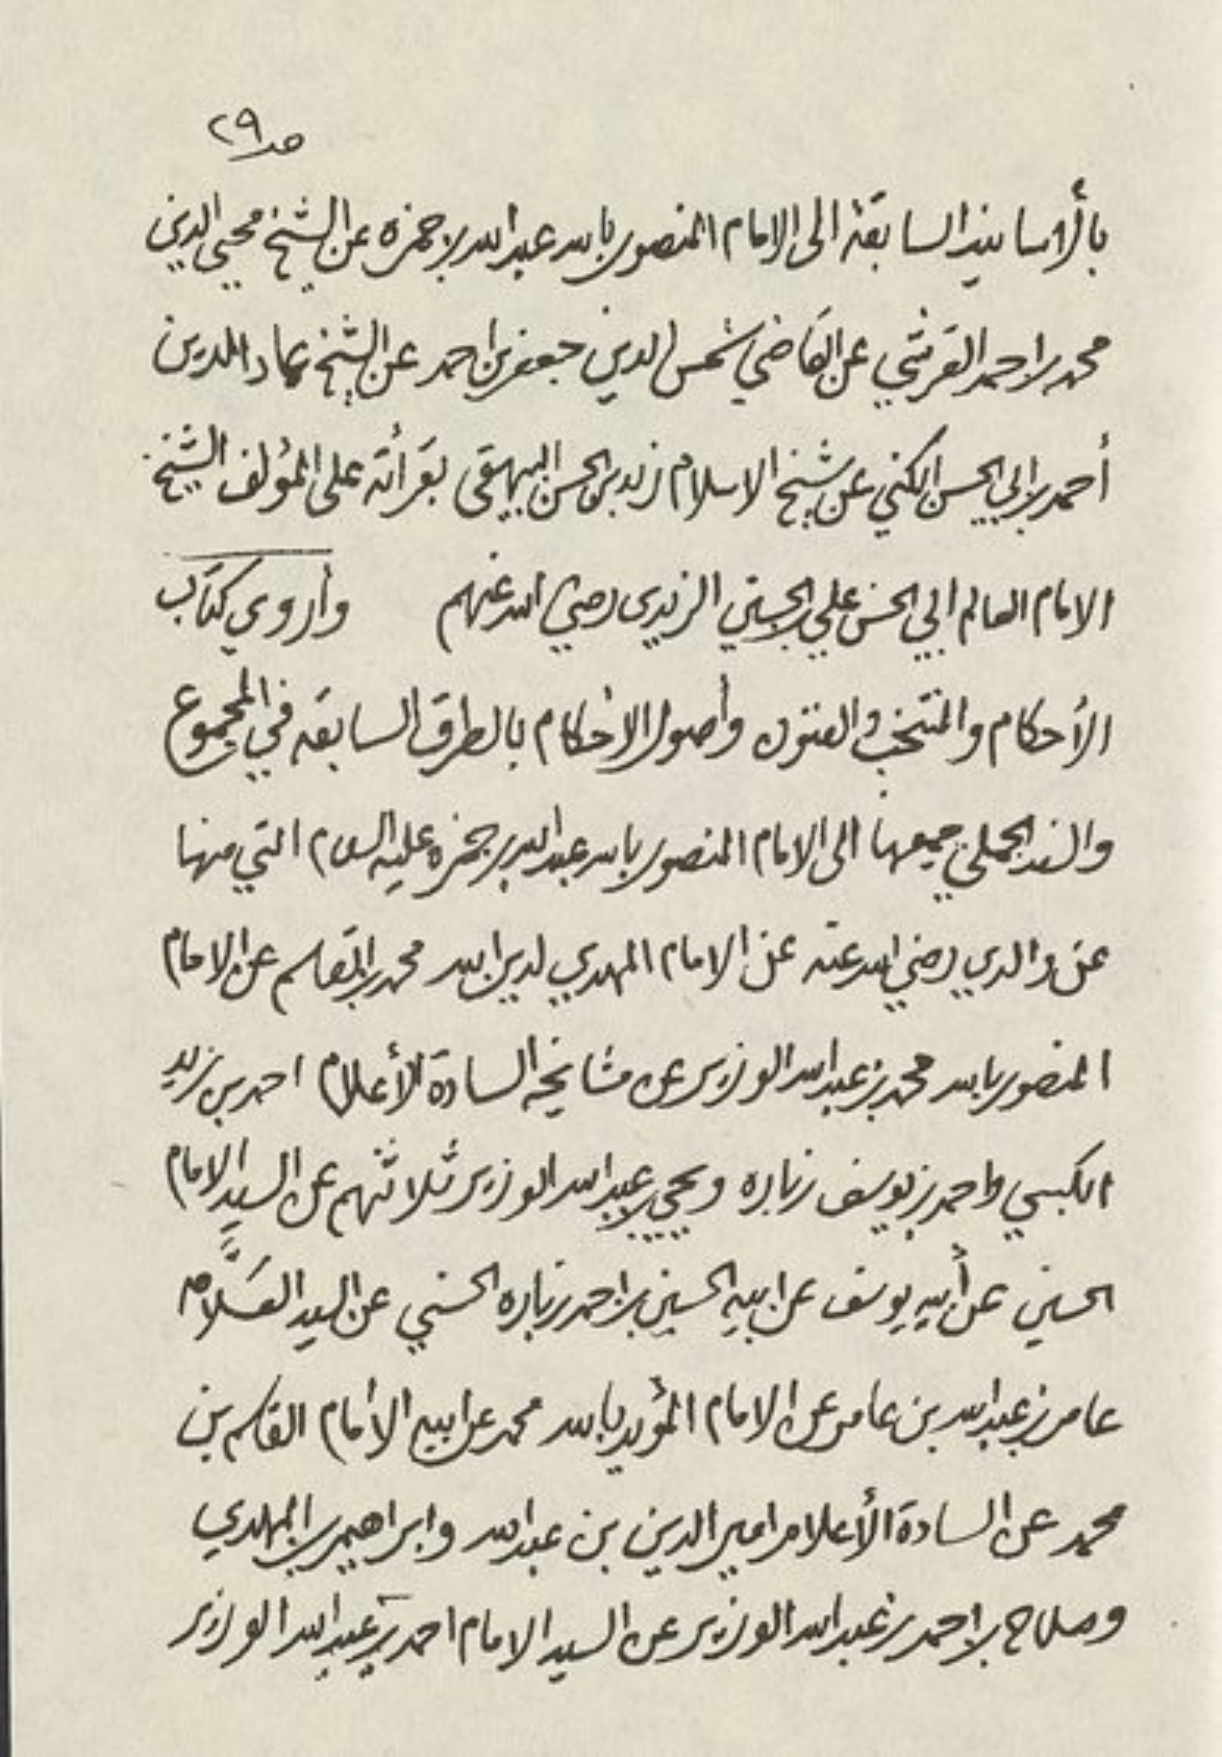 صـ٢٩
بالأسانيد السابقة الى الامام المنصور بالله عبدالله بن حمزه عن الشيخ محيي الدين
محمد بن احمد القرشي عن القاضي شمس الدين جعفر بن احمد عن الشيخ عماد الدين
أحمد بن ابي الحسن الكني عن شيخ الاسلام زيد بن الحسن البيهقي بقرائته على المؤلف الشيخ
الامام العالم ابي الحسن علي الزيدي رضي الله عنهم وأروي كتاب
الأحكام والمنتخب والفنون وأصول الاحكام بالطرق السابقه في المجموع
والسند الجملي جميعها الى الامام المنصور بالله عبدالله بن حمزه عليه السلام التي منها
عن والدي رضي الله عنه عن الامام المهدي لدين الله محمد بن القاسم عن الامام
المنصور بالله محمد بن عبدالله الوزير عن مشايخه السادة الأعلام احمد بن زيد
الكبسي واحمد بن يوسف زباره ويحيى بن عبدالله الوزير ثلاثتهم عن السيد الامام
الحسين عن أبيه يوسف عن ابيه الحسين بن احمد زباره الحسني عن السيد العلامه
عامر بن عبدالله بن عامر عن الامام المؤيد بالله محمد عن ابيه الامام القاسم بن
محمد عن السادة الأعلام امير الدين بن عبدالله وابراهيم بن المهدي
وصلاح بن احمد بن عبدالله الوزير عن السيد الامام احمد بن عبدالله الوزير